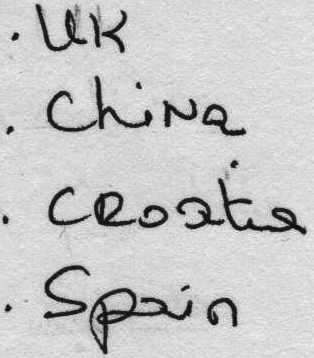 . UK
. China
. Croatia
. Spain